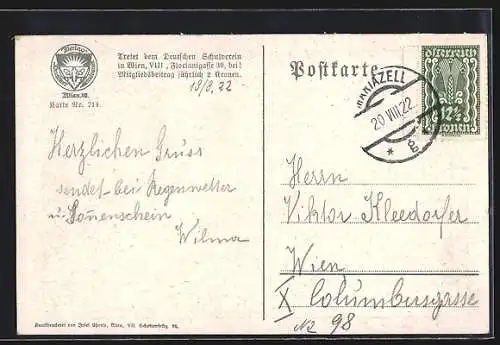 Wien, VIII.
Karte Nr. 218.
Tretet dem Deutschen Schulverein
in Wien, VIII., Florianigasse 39, bei!
Mitgliedsbeitrag jährlich 2 Kronen.
18/8. 22
Herzlichen Gruss
sendet bei Regenwetter
u. Sonnenschein
Wilma
Postkarte
MARIAZELL
20 VIII 22
*
österreich
12½
Kronen
Herrn
Viktor Kleedorfer
Wien
X Columbusgasse
No 98
Kunstdruckerei von Josef Eberle, Wien, VII.